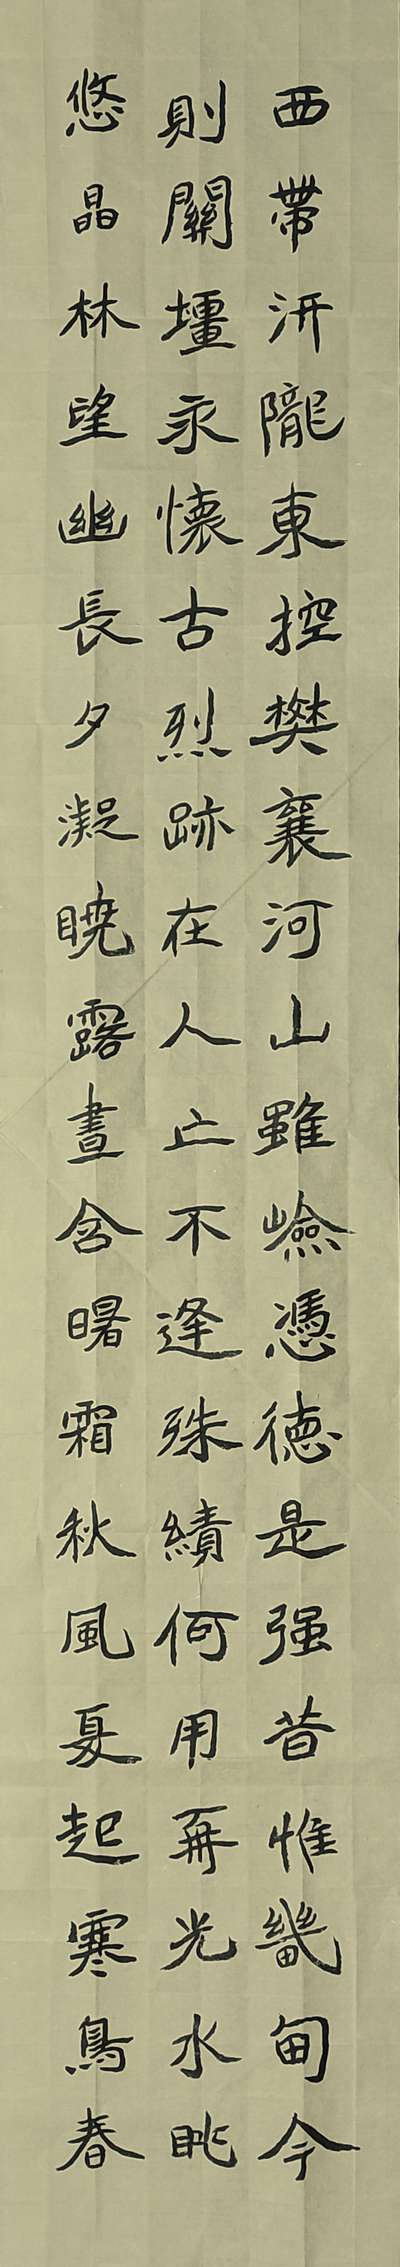 西帶汧隴東控樊襄河山雖嶮憑德是强昔惟畿甸今
則關壃永懷古烈跡在人亡不逢殊績何用再光水眺
悠晶林望幽長夕凝曉露晝含曙霜秋風夏起寒鳥春